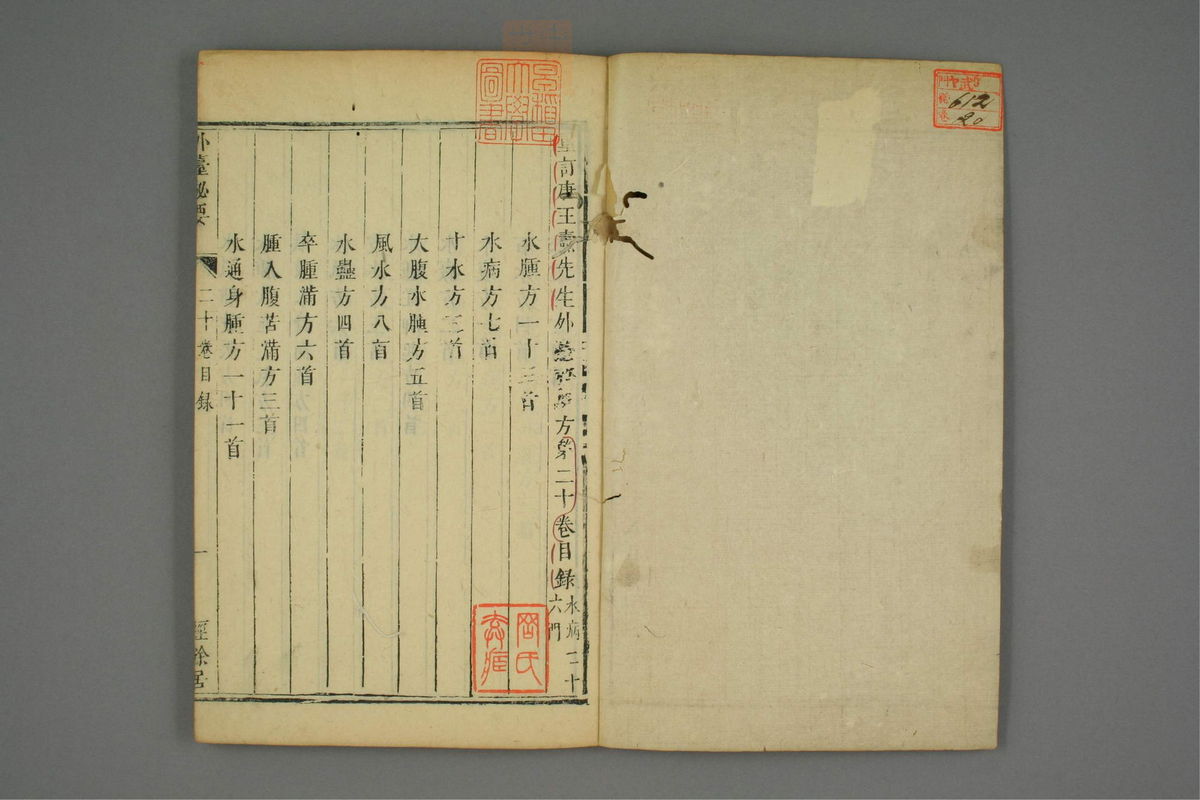 ヤ 09
612
20
早稲田大學圖書
重訂唐王燾先生外臺秘要方第二十卷目錄 水病二十六門
水腫方一十三首
水病方七首
十水方三首
大腹水腫方五首
風水方八首
水蠱方四首
卒腫滿方六首
腫入腹苦滿方三首
水通身腫方一十一首
外臺秘要 二十卷目錄 一 經餘居